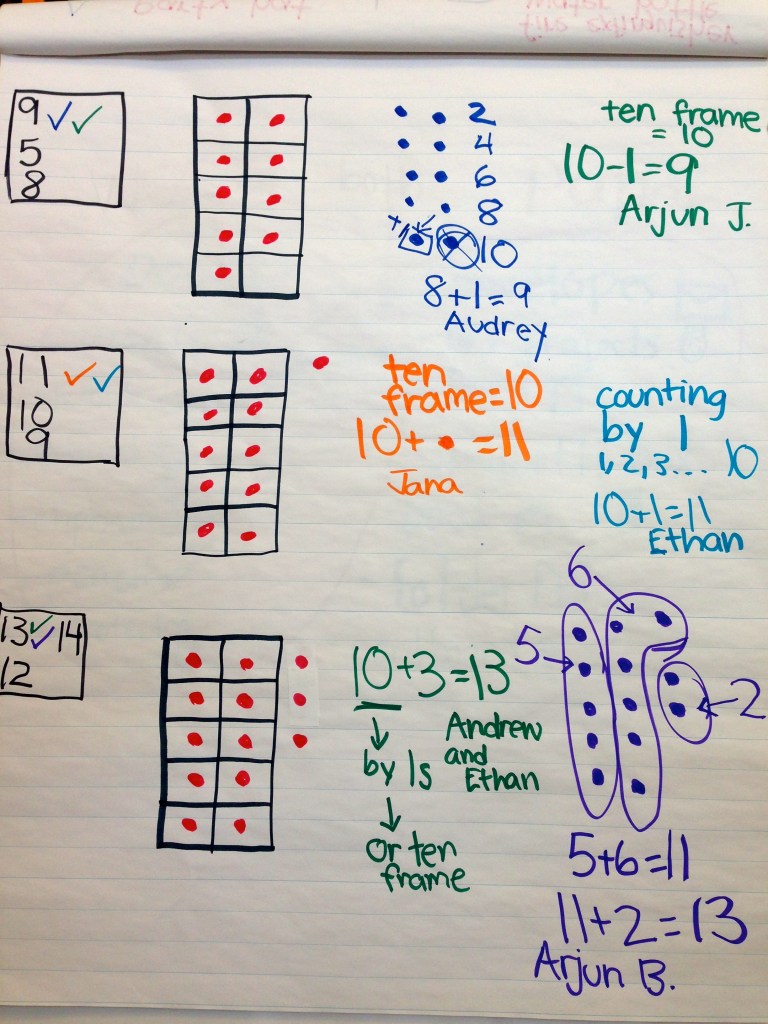 water bottle
fire extinguisher
9
5
8
2
4
6
8
+ 10
8+1=9
Audrey
ten frame
= 10
10-1=9
Arjun J.
11
10
9
ten
frame=10
10+ • =11
Jana
counting
by 1
1, 2, 3... 10
10+1=11
Ethan
13 14
12
10+3=13
Andrew
and
Ethan
by 1s
or ten
frame
6
5
2
5+6=11
11+2=13
Arjun B.